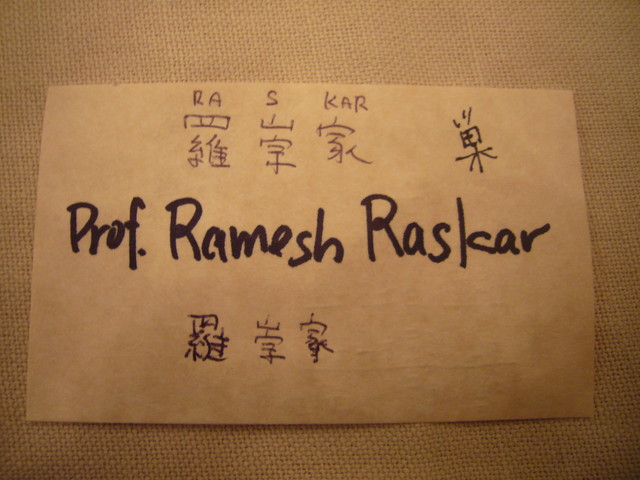 RA S KAR
羅 崇 家 巣
Prof. Ramesh Raskar
羅 崇 家